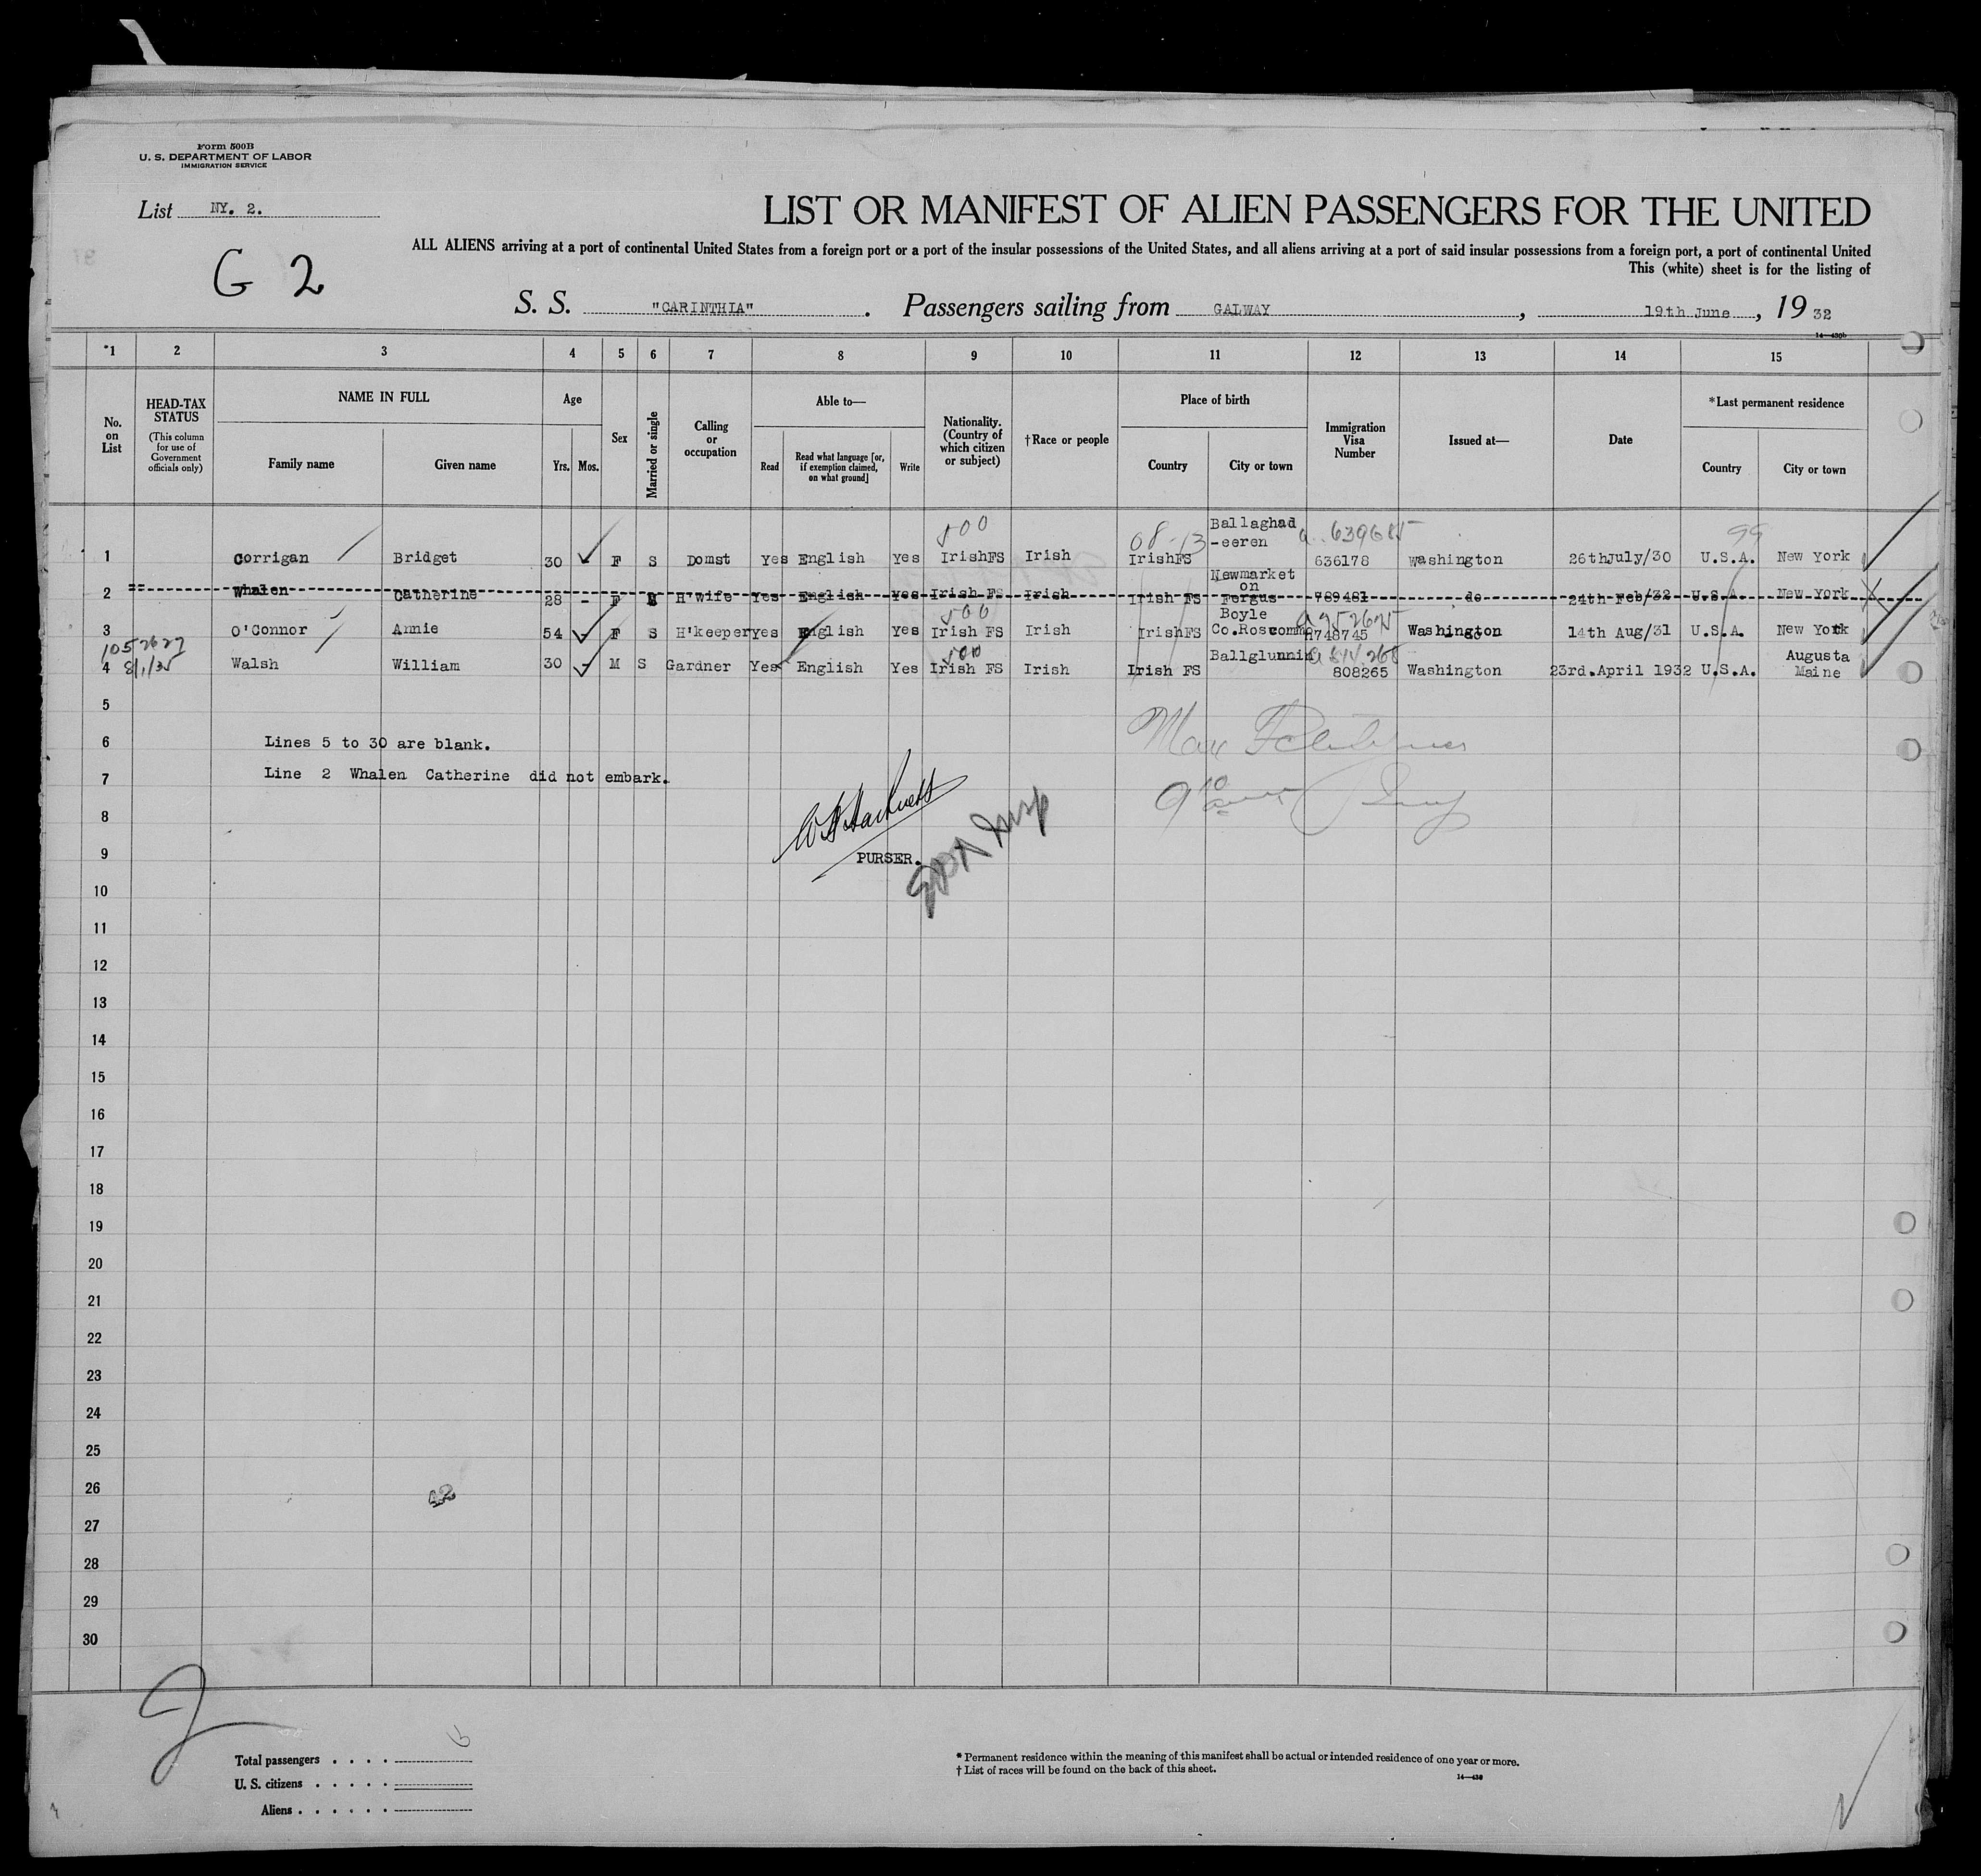 Form 500B
U. S. DEPARTMENT OF LABOR
IMMIGRATION SERVICE
List NY. 2.
LIST OR MANIFEST OF ALIEN PASSENGERS FOR THE UNITED
G 2
ALL ALIENS arriving at a port of continental United States from a foreign port or a port of the insular possessions of the United States, and all aliens arriving at a port of said insular possessions from a foreign port, a port of continental United
This (white) sheet is for the listing of
S. S. "CARINTHIA" . Passengers sailing from GALWAY , 19th June , 19 32
14—430b
*1 2 3 4 5 6 7 8 9 10 11 12 13 14 15
No. on List
HEAD-TAX STATUS
(This column for use of Government officials only)
NAME IN FULL
Family name Given name
Age
Yrs. Mos.
Sex
Married or single
Calling or occupation
Able to—
Read
Read what language [or, if exemption claimed, on what ground]
Write
Nationality. (Country of which citizen or subject)
†Race or people
Place of birth
Country City or town
Immigration Visa Number
Issued at—
Date
*Last permanent residence
Country City or town
500 08-13 Ballaghad -eeren 99
1 Corrigan Bridget 30 F S Domst Yes English Yes IrishFS Irish IrishFS 636178 Washington 26thJuly/30 U.S.A. New York
Newmarket on
2 Whalen Catherine 28 - F H'wife Yes English Yes Irish FS Irish Irish FS Fergus 789481 do 24th Feb/32 U.S.A. New York
500 Boyle
3 O'Connor Annie 54 - F S H'keeper Yes English Yes Irish FS Irish IrishFS Co.Roscommn 748745 Washington 14th Aug/31 U.S.A. New York
1052627
8/1/35
500 Ballglunnin Augusta
4 Walsh William 30 - M S Gardner Yes English Yes Irish FS Irish Irish FS 808265 Washington 23rd.April 1932 U.S.A. Maine
5
6 Lines 5 to 30 are blank.
7 Line 2 Whalen Catherine did not embark.
8
9 PURSER.
10
11
12
13
14
15
16
17
18
19
20
21
22
23
24
25
26
27
28
29
30
Total passengers . . . .
U. S. citizens . . . . .
Aliens . . . . . .
* Permanent residence within the meaning of this manifest shall be actual or intended residence of one year or more.
† List of races will be found on the back of this sheet.
14—430